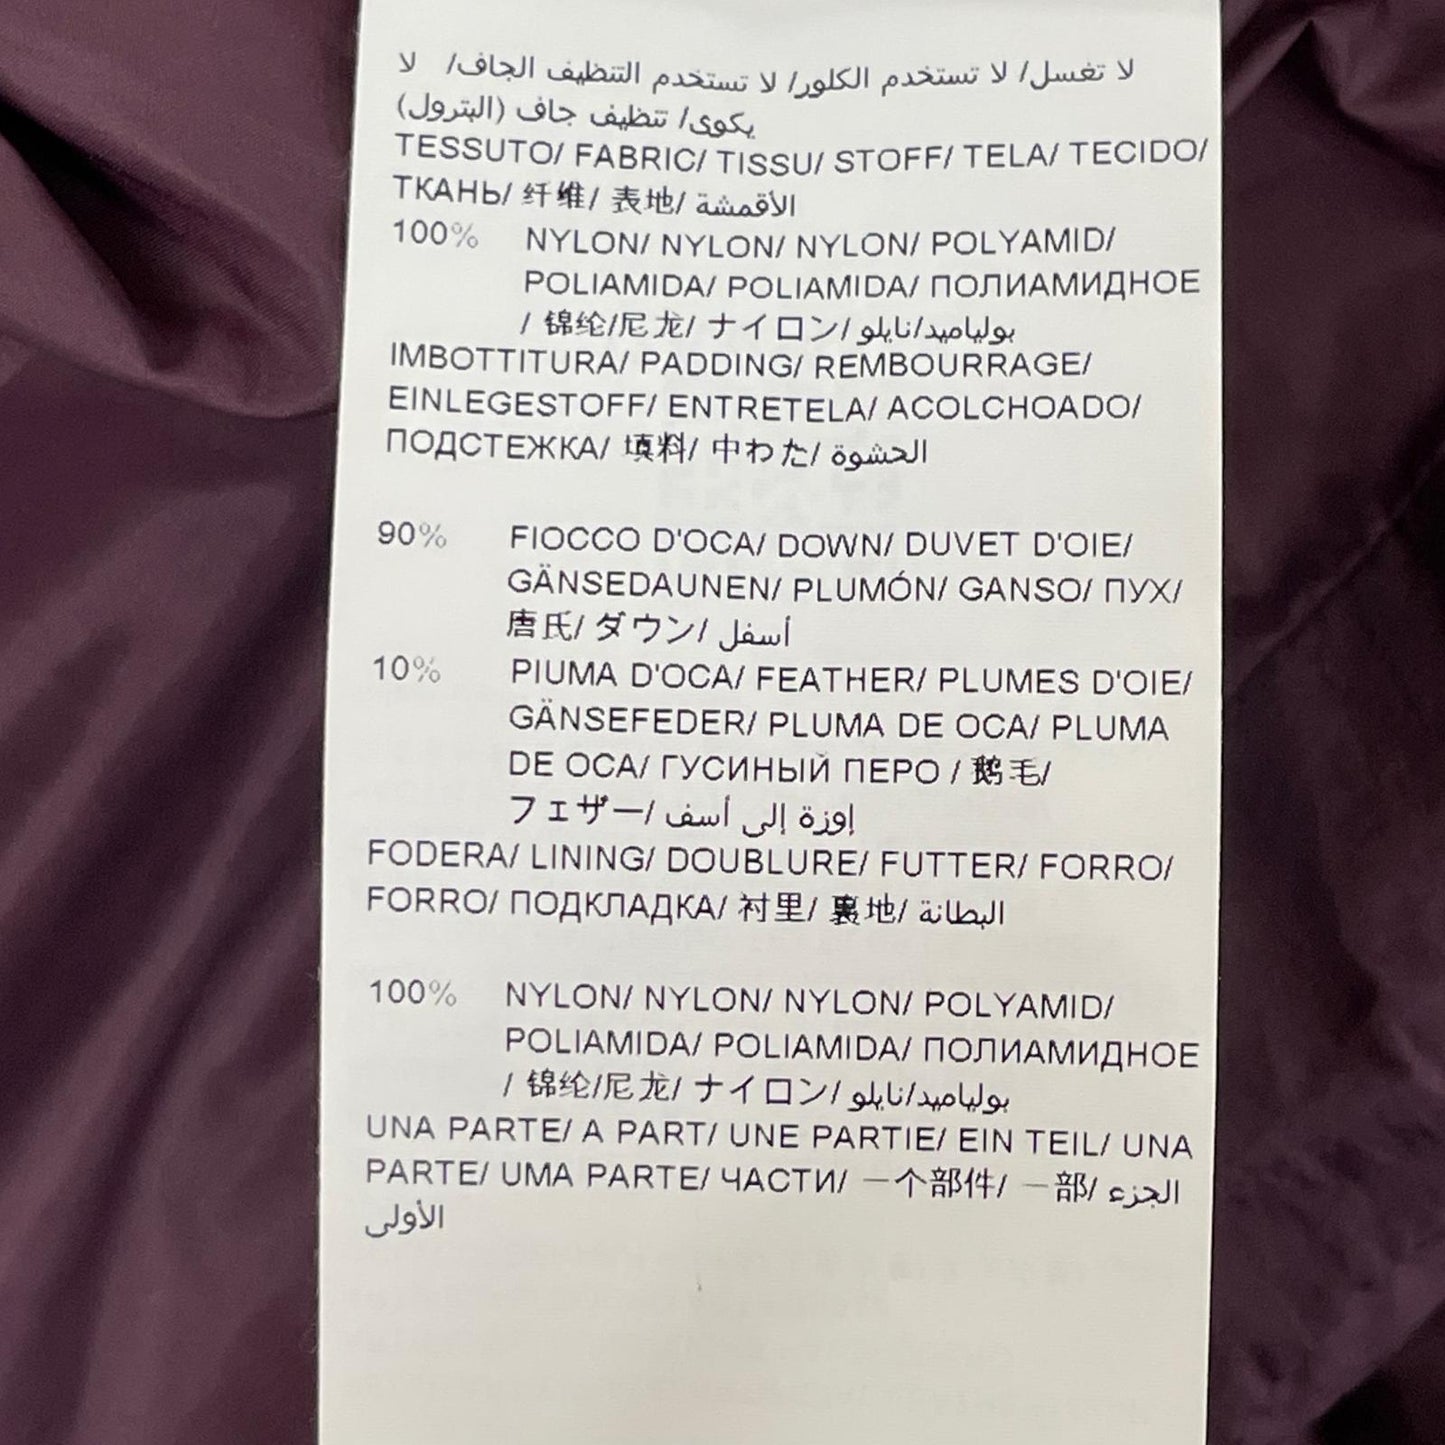 لا تغسل/ لا تستخدم الكلور/ لا تستخدم التنظيف الجاف/ لا
يكوى/ تنظيف جاف (البترول)
TESSUTO/ FABRIC/ TISSU/ STOFF/ TELA/ TECIDO/
ТКАНЬ/ 纤维/ 表地/ الأقمشة
100% NYLON/ NYLON/ NYLON/ POLYAMID/
POLIAMIDA/ POLIAMIDA/ ПОЛИАМИДНОЕ
/ 锦纶/尼龙/ ナイロン/ بولياميد/نايلو
IMBOTTITURA/ PADDING/ REMBOURRAGE/
EINLEGESTOFF/ ENTRETELA/ ACOLCHOADO/
ПОДСТЕЖКА/ 填料/ 中わた/ الحشوة
90% FIOCCO D'OCA/ DOWN/ DUVET D'OIE/
GÄNSEDAUNEN/ PLUMÓN/ GANSO/ ПУХ/
唐氏/ ダウン/ أسفل
10% PIUMA D'OCA/ FEATHER/ PLUMES D'OIE/
GÄNSEFEDER/ PLUMA DE OCA/ PLUMA
DE OCA/ ГУСИНЫЙ ПЕРО / 鹅毛/
フェザー/ إوزة إلى أسف
FODERA/ LINING/ DOUBLURE/ FUTTER/ FORRO/
FORRO/ ПОДКЛАДКА/ 衬里/ 裏地/ البطانة
100% NYLON/ NYLON/ NYLON/ POLYAMID/
POLIAMIDA/ POLIAMIDA/ ПОЛИАМИДНОЕ
/ 锦纶/尼龙/ ナイロン/ بولياميد/نايلو
UNA PARTE/ A PART/ UNE PARTIE/ EIN TEIL/ UNA
PARTE/ UMA PARTE/ ЧАСТИ/ 一个部件/ 一部/ الجزء
الأولى